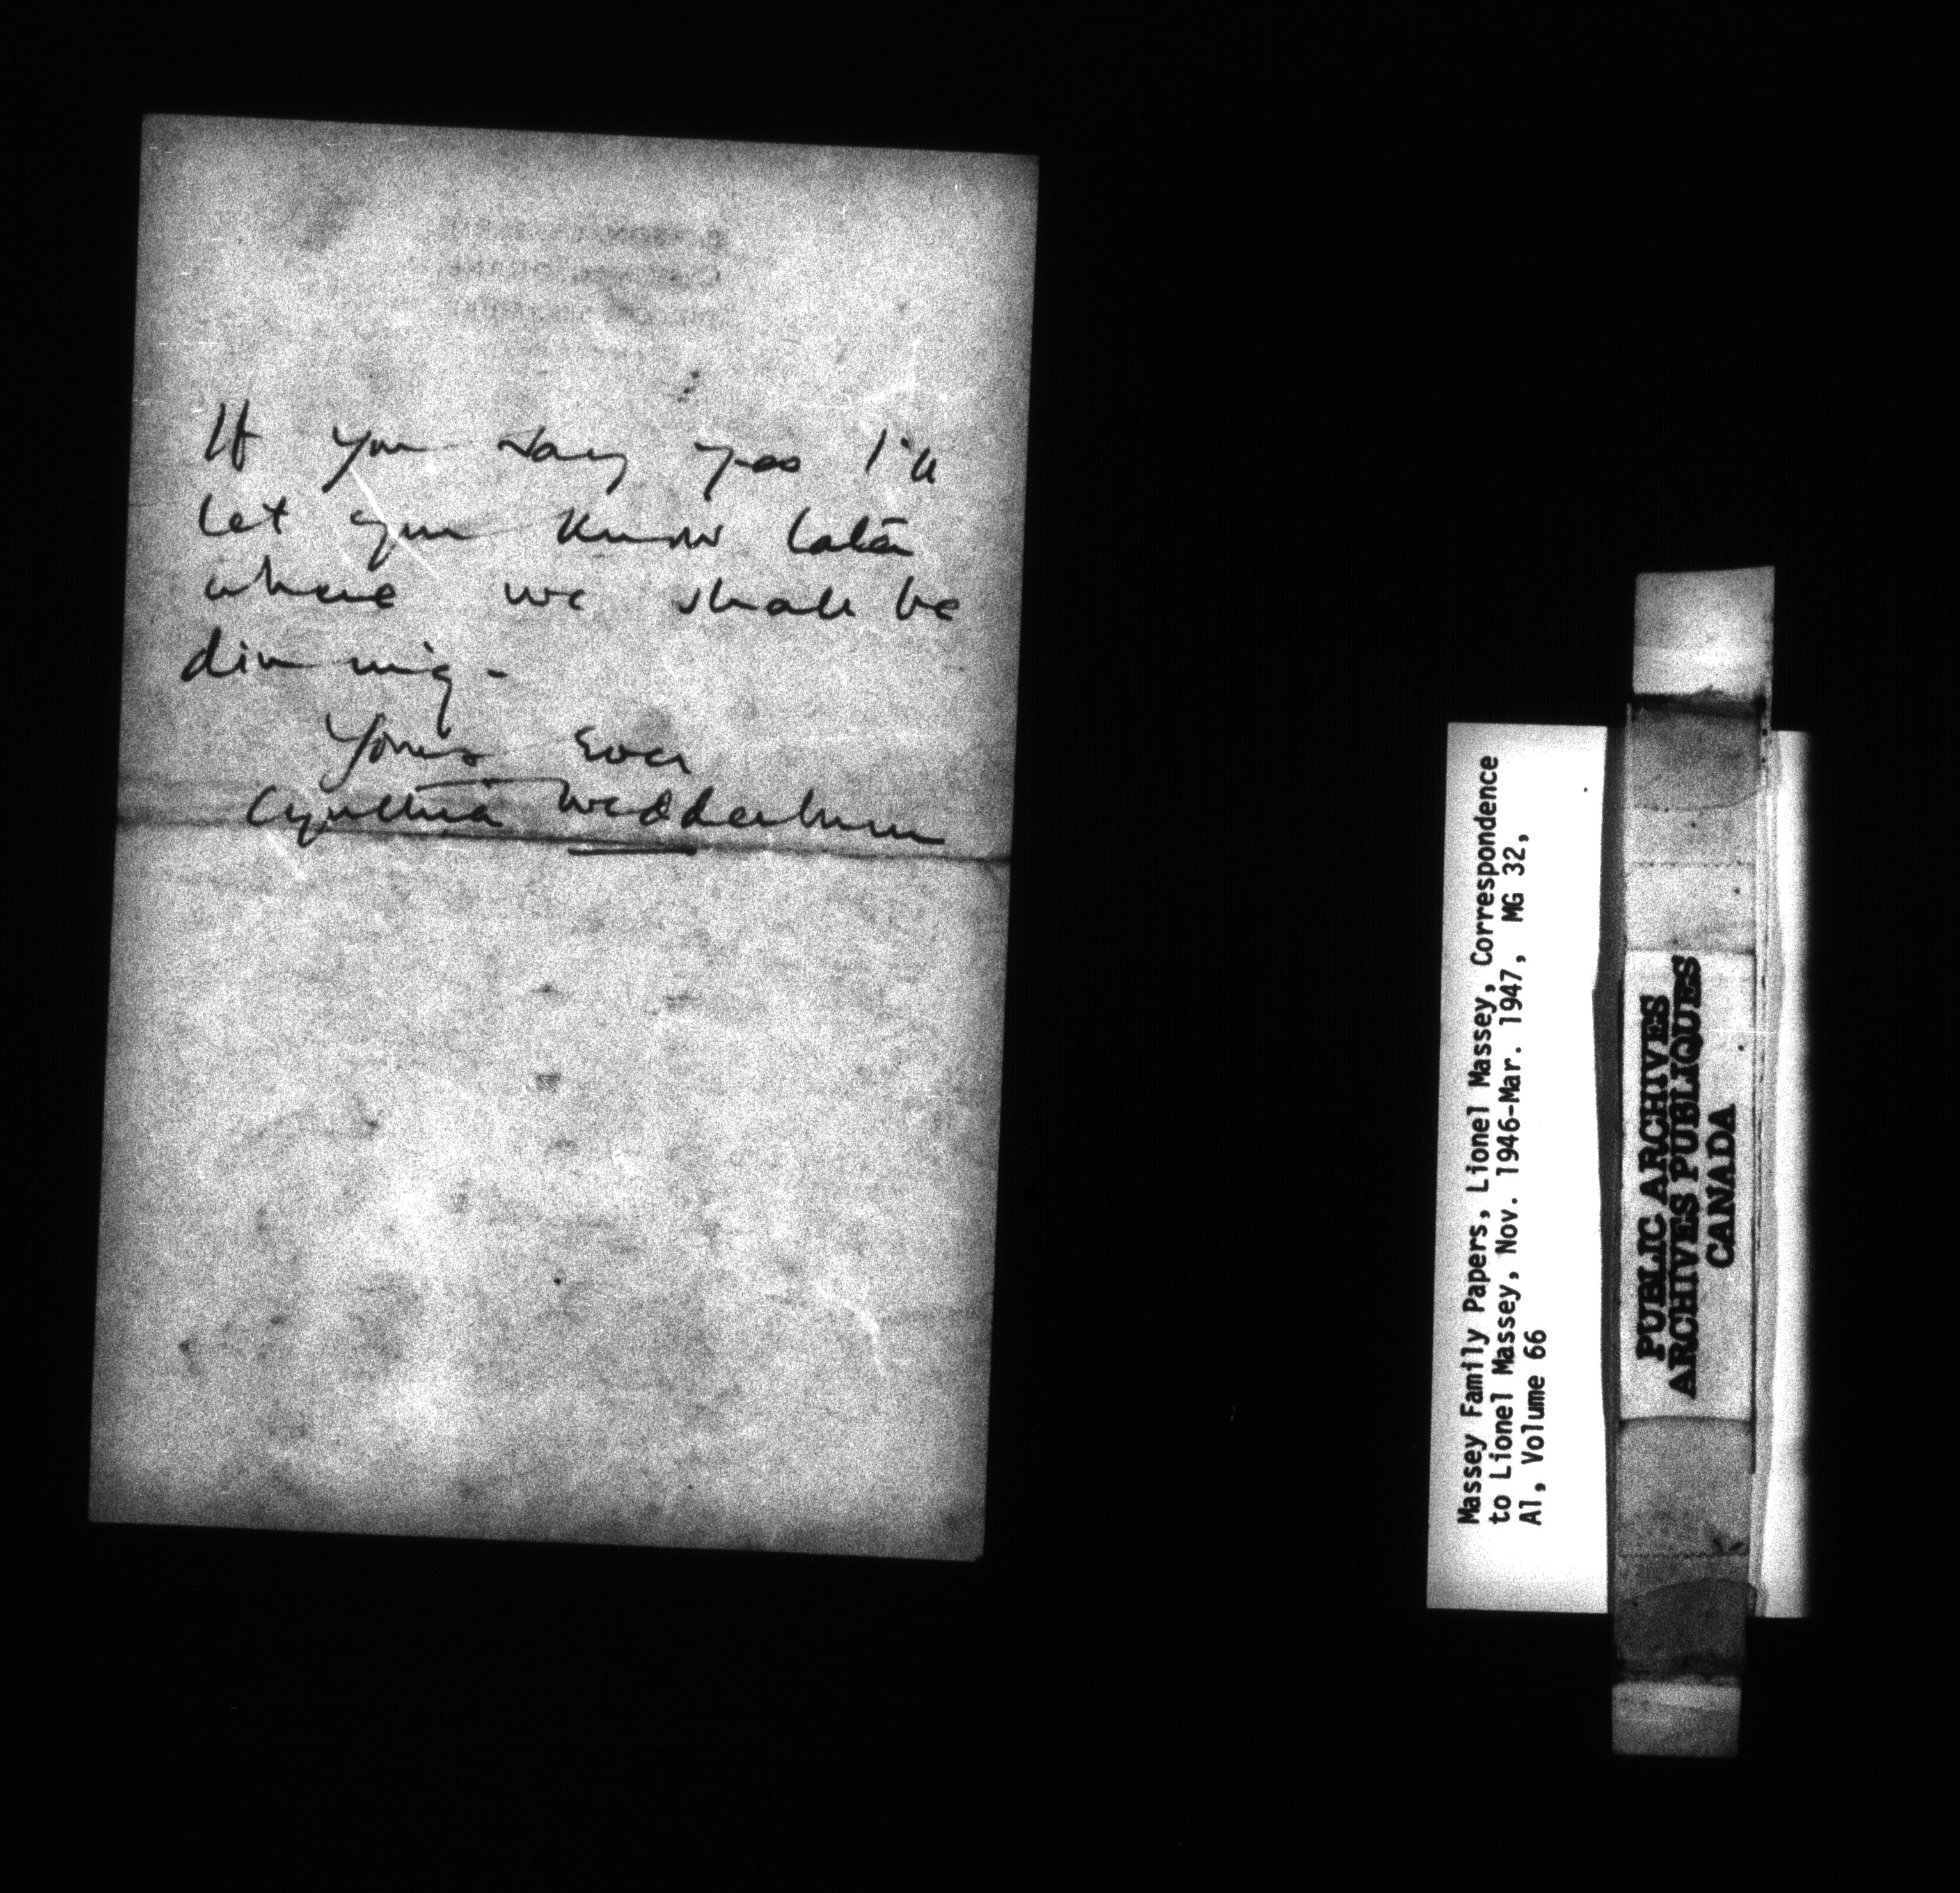 If you say yes I'll
let you know later
where we shall be
dinning -
Yours ever
Cynthia Wedderburn
Massey Family Papers, Lionel Massey, Correspondence
to Lionel Massey, Nov. 1946-Mar. 1947, MG 32,
A1, Volume 66
PUBLIC ARCHIVES
ARCHIVES PUBLIQUES
CANADA